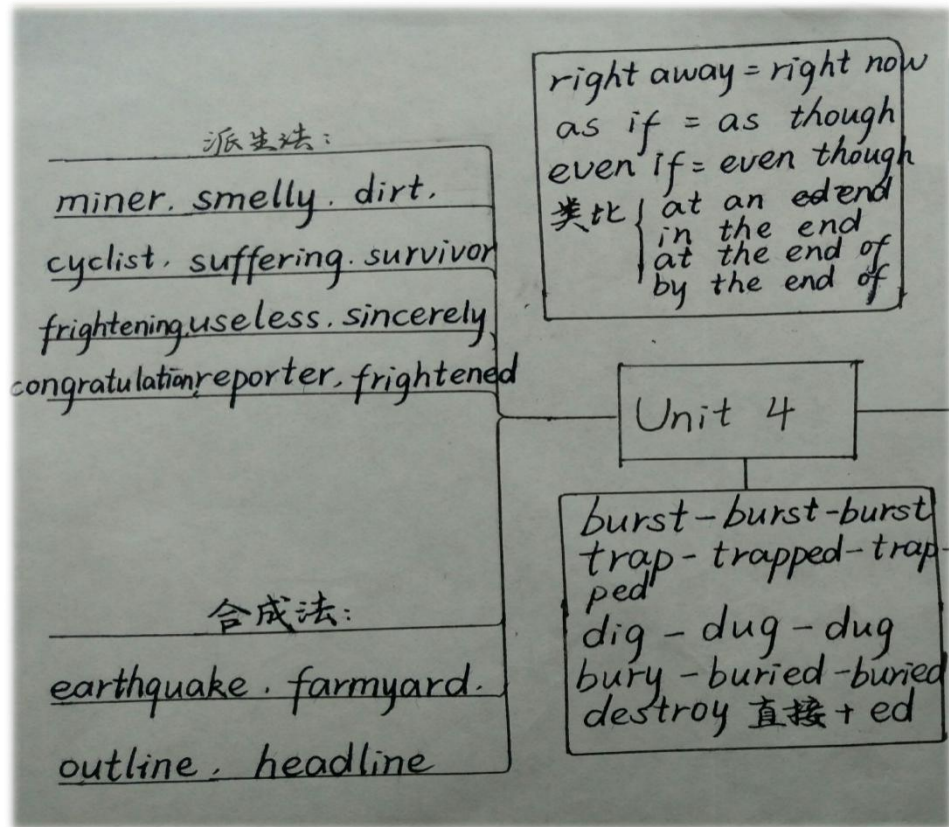 派生法:
miner. smelly. dirt.
cyclist. suffering. survivor
frightening. useless. sincerely
congratulation, reporter, frightened
合成法:
earthquake. farmyard.
outline. headline
right away = right now
as if = as though
even if = even though
类比 { at an end
in the end
at the end of
by the end of
Unit 4
burst - burst - burst
trap - trapped - trap-
ped
dig - dug - dug
bury - buried - buried
destroy 直接 + ed